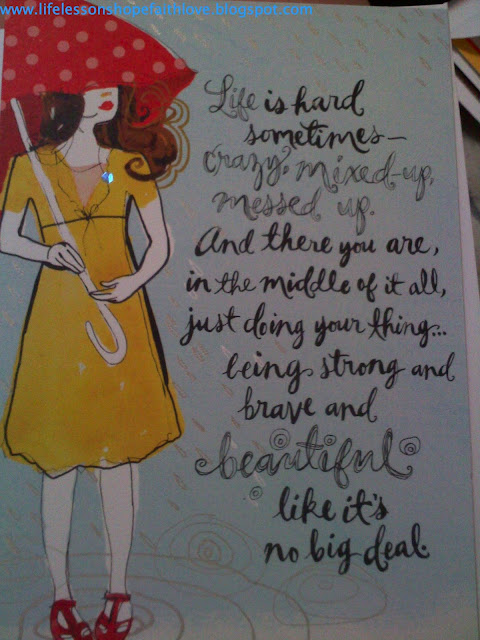 www.lifelessonshopefaithlove.blogspot.com
Life is hard
sometimes—
crazy, mixed-up,
messed up.
And there you are,
in the middle of it all,
just doing your thing...
being strong and
brave and
beautiful
like it's
no big deal.